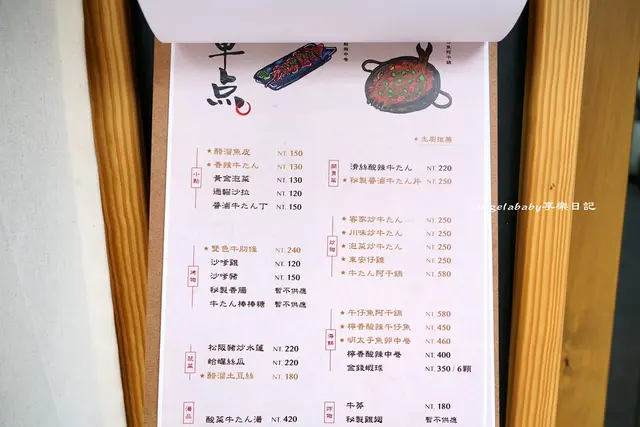 単点
★主廚推薦
小點
★醋溜魚皮 NT. 150
★香辣牛たん NT. 130
黃金泡菜 NT. 130
過貓沙拉 NT. 120
醬滷牛たん丁 NT. 150
開胃菜
滑絲酸辣牛たん NT. 220
★秘製醬滷牛たん片 NT. 250
炒物
★客家炒牛たん NT. 250
★川味炒牛たん NT. 250
★泡菜炒牛たん NT. 250
★東安仔雞 NT. 250
★牛たん阿干鍋 NT. 580
烤物
★雙色牛肋條 NT. 240
沙爹雞 NT. 120
沙爹豬 NT. 150
秘製香腸 暫不供應
牛たん棒棒糖 暫不供應
海鮮
★午仔魚阿干鍋 NT. 580
★檸香酸辣午仔魚 NT. 450
★明太子魚卵中卷 NT. 460
檸香酸辣中卷 NT. 400
金錢蝦球 NT. 350 / 6顆
蔬菜
松阪豬炒水蓮 NT. 220
蛤蠣絲瓜 NT. 220
★醋溜土豆絲 NT. 180
湯品
酸菜牛たん湯 NT. 420
炸物
牛蒡 NT. 180
秘製雞翅 暫不供應
Angelababy享樂日記